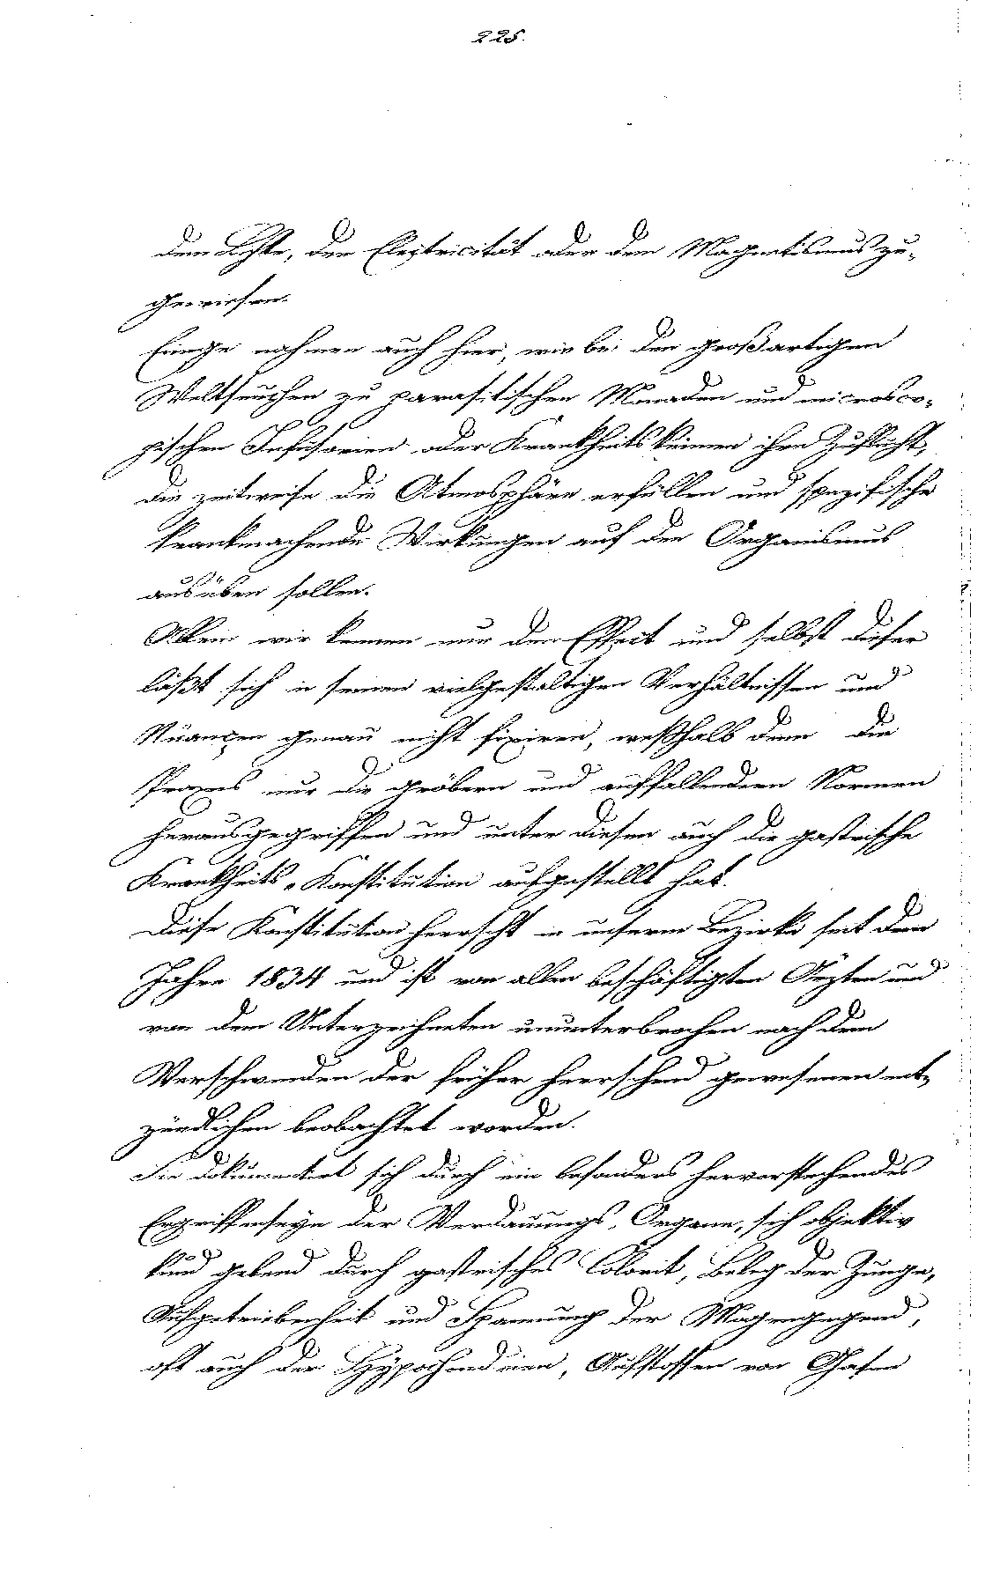 225.
dem Lichte, der Elektricität oder dem Magnetismus zu-
gewiesen.
Einige nahmen auch hier, wie bei den großartigen
Weltseuchen zu parasitischen Monaden und microsco-
pischen Infusorien oder Krankheitskeimen ihre Zuflucht,
die zeitweise die Atmosphäre erfüllen und spezifische
krankmachende Wirkungen auf den Organismus
ausüben sollen.
Allein wir kennen nur den Effect und selbst dieser
läßt sich in seinen vielgestaltigen Verhältnissen und
Nüançen genau nicht fixiren, weßhalb denn die
Praxis nur die gröbern und auffallendern Normen
herausgegriffen und unter diesen auch die gastrische
Krankheits-Konstitution aufgestellt hat.
Diese Konstitution herrscht in unserm Bezirke seit dem
Jahre 1834 und ist von allen beschäftigten Ärzten und
von dem Unterzeichneten ununterbrochen nach dem
Verschwinden der früher herrschend gewesenen ent-
zündlichen beobachtet worden.
Sie dokumentirt sich durch ein besonders hervorstechendes
Ergriffenseyn der Verdauungs-Organe, sich objektiv
kund gebend durch gastrisches Colorit, Beleg der Zunge,
Aufgetriebenheit und Spannung der Magengegend,
oft auch der Hypochondrien, Aufstossen von Gasen